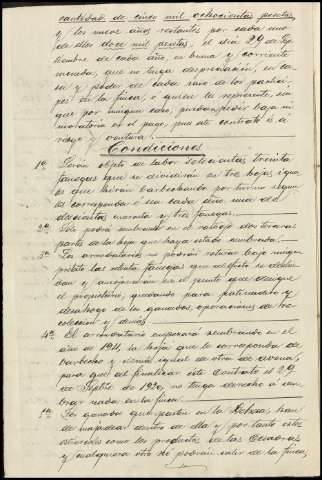 cantidad de cinco mil ochocientas pesetas,
y los nueve años restantes por cada uno
de ellos doce mil pesetas, el dia 29 de Sep-
tiembre de cada año, en buena y corriente
moneda, que no tenga depreciación, en ca-
sa y poder de cada uno de los partici-
pes en la finca, o quien les represente, sin
que por ningun caso, puedan pedir baja ni
moratoria en el pago, pues este contrato es á
riesgo y ventura.
Condiciones
1ª Serán objeto de labor setecientas treinta
fanegas que se dividirán en tres hojas igua-
les que se irán barbechando por turno segun
les corresponda ó sea cada año una de
doscientas cuarenta y tres fanegas.
2ª Solo podrá sembrarse en el rastrojo dos terceras
partes de la hoja que haya estado sembrada.
3ª Los arrendatarios no podrán roturar bajo ningun
pretexto las fanegas que
y en el punto que designe
el propietario, quedando para pastiaderos y
desahogo de los ganados, operaciones de re-
colección y demás.
4ª El arrendatario empezará sembrando en el
año de 1911, la hoja que le corresponda de
barbecho y demás igual de otra de avena,
para que al finalizar este Contrato el 29
de Septbre de 1920, no tenga derecho á sem-
brar nada en la finca.
5ª Los ganados que pasten en la Dehesa, han
de majadear dentro de ella y por tanto estos
estiercoles como los productos de las
y cualquiera otro no podrán salir de la finca,